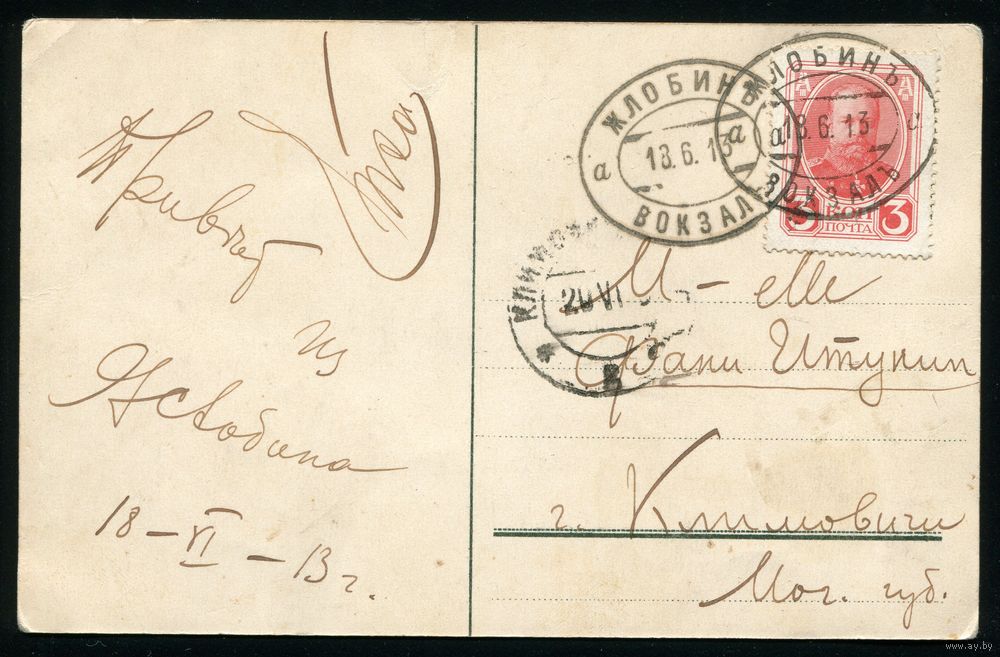 Привет
из
Жлобина
18 – VI – 13 г.
ЖЛОБИНЪ
а 18.6.13 а
ВОКЗАЛЪ
ЖЛОБИНЪ
а 18.6.13 а
ВОКЗАЛЪ
3 КОП 3
ПОЧТА
20 VI
М – elle
Фани Итунин
г. Климовичи
Мог. губ.
www.ay.by